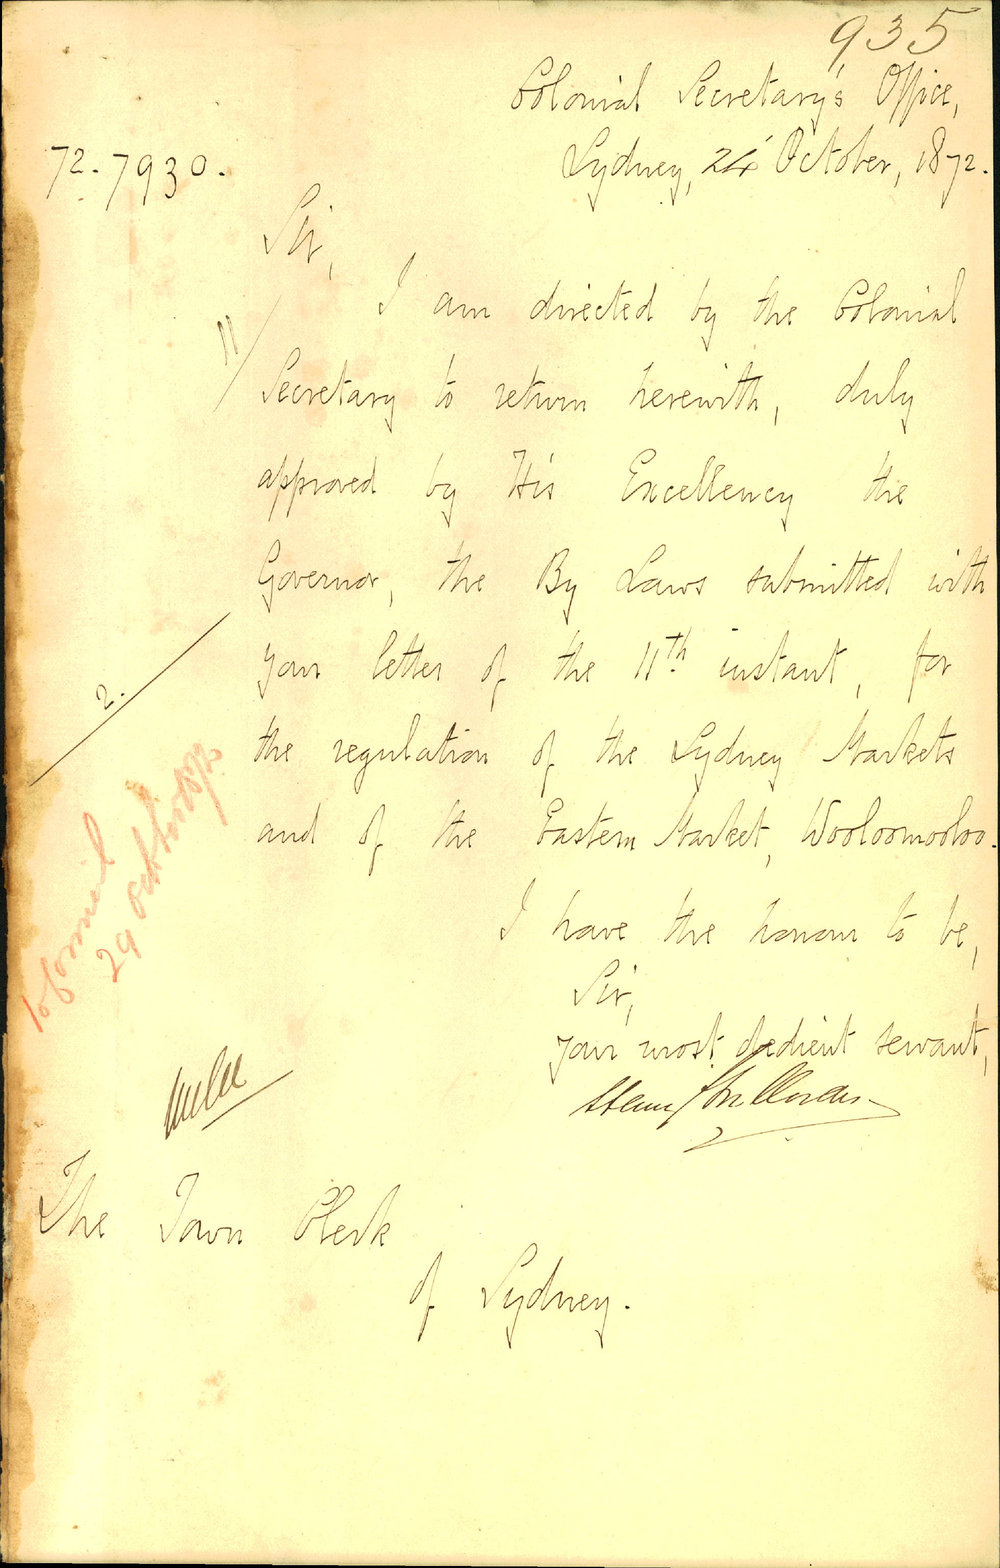 935
Colonial Secretary's Office,
Sydney, 24 October, 1872.
72.7930.
Sir,
I am directed by the Colonial
Secretary to return herewith, duly
approved by His Excellency the
Governor, the By Laws submitted with
your letter of the 11th instant, for
the regulation of the Sydney Markets
and of the Eastern Market, Wooloomooloo.
I have the honour to be,
Sir,
Your most obedient servant,
Henry Halloran
2.
29 Oct
The Town Clerk
of Sydney.